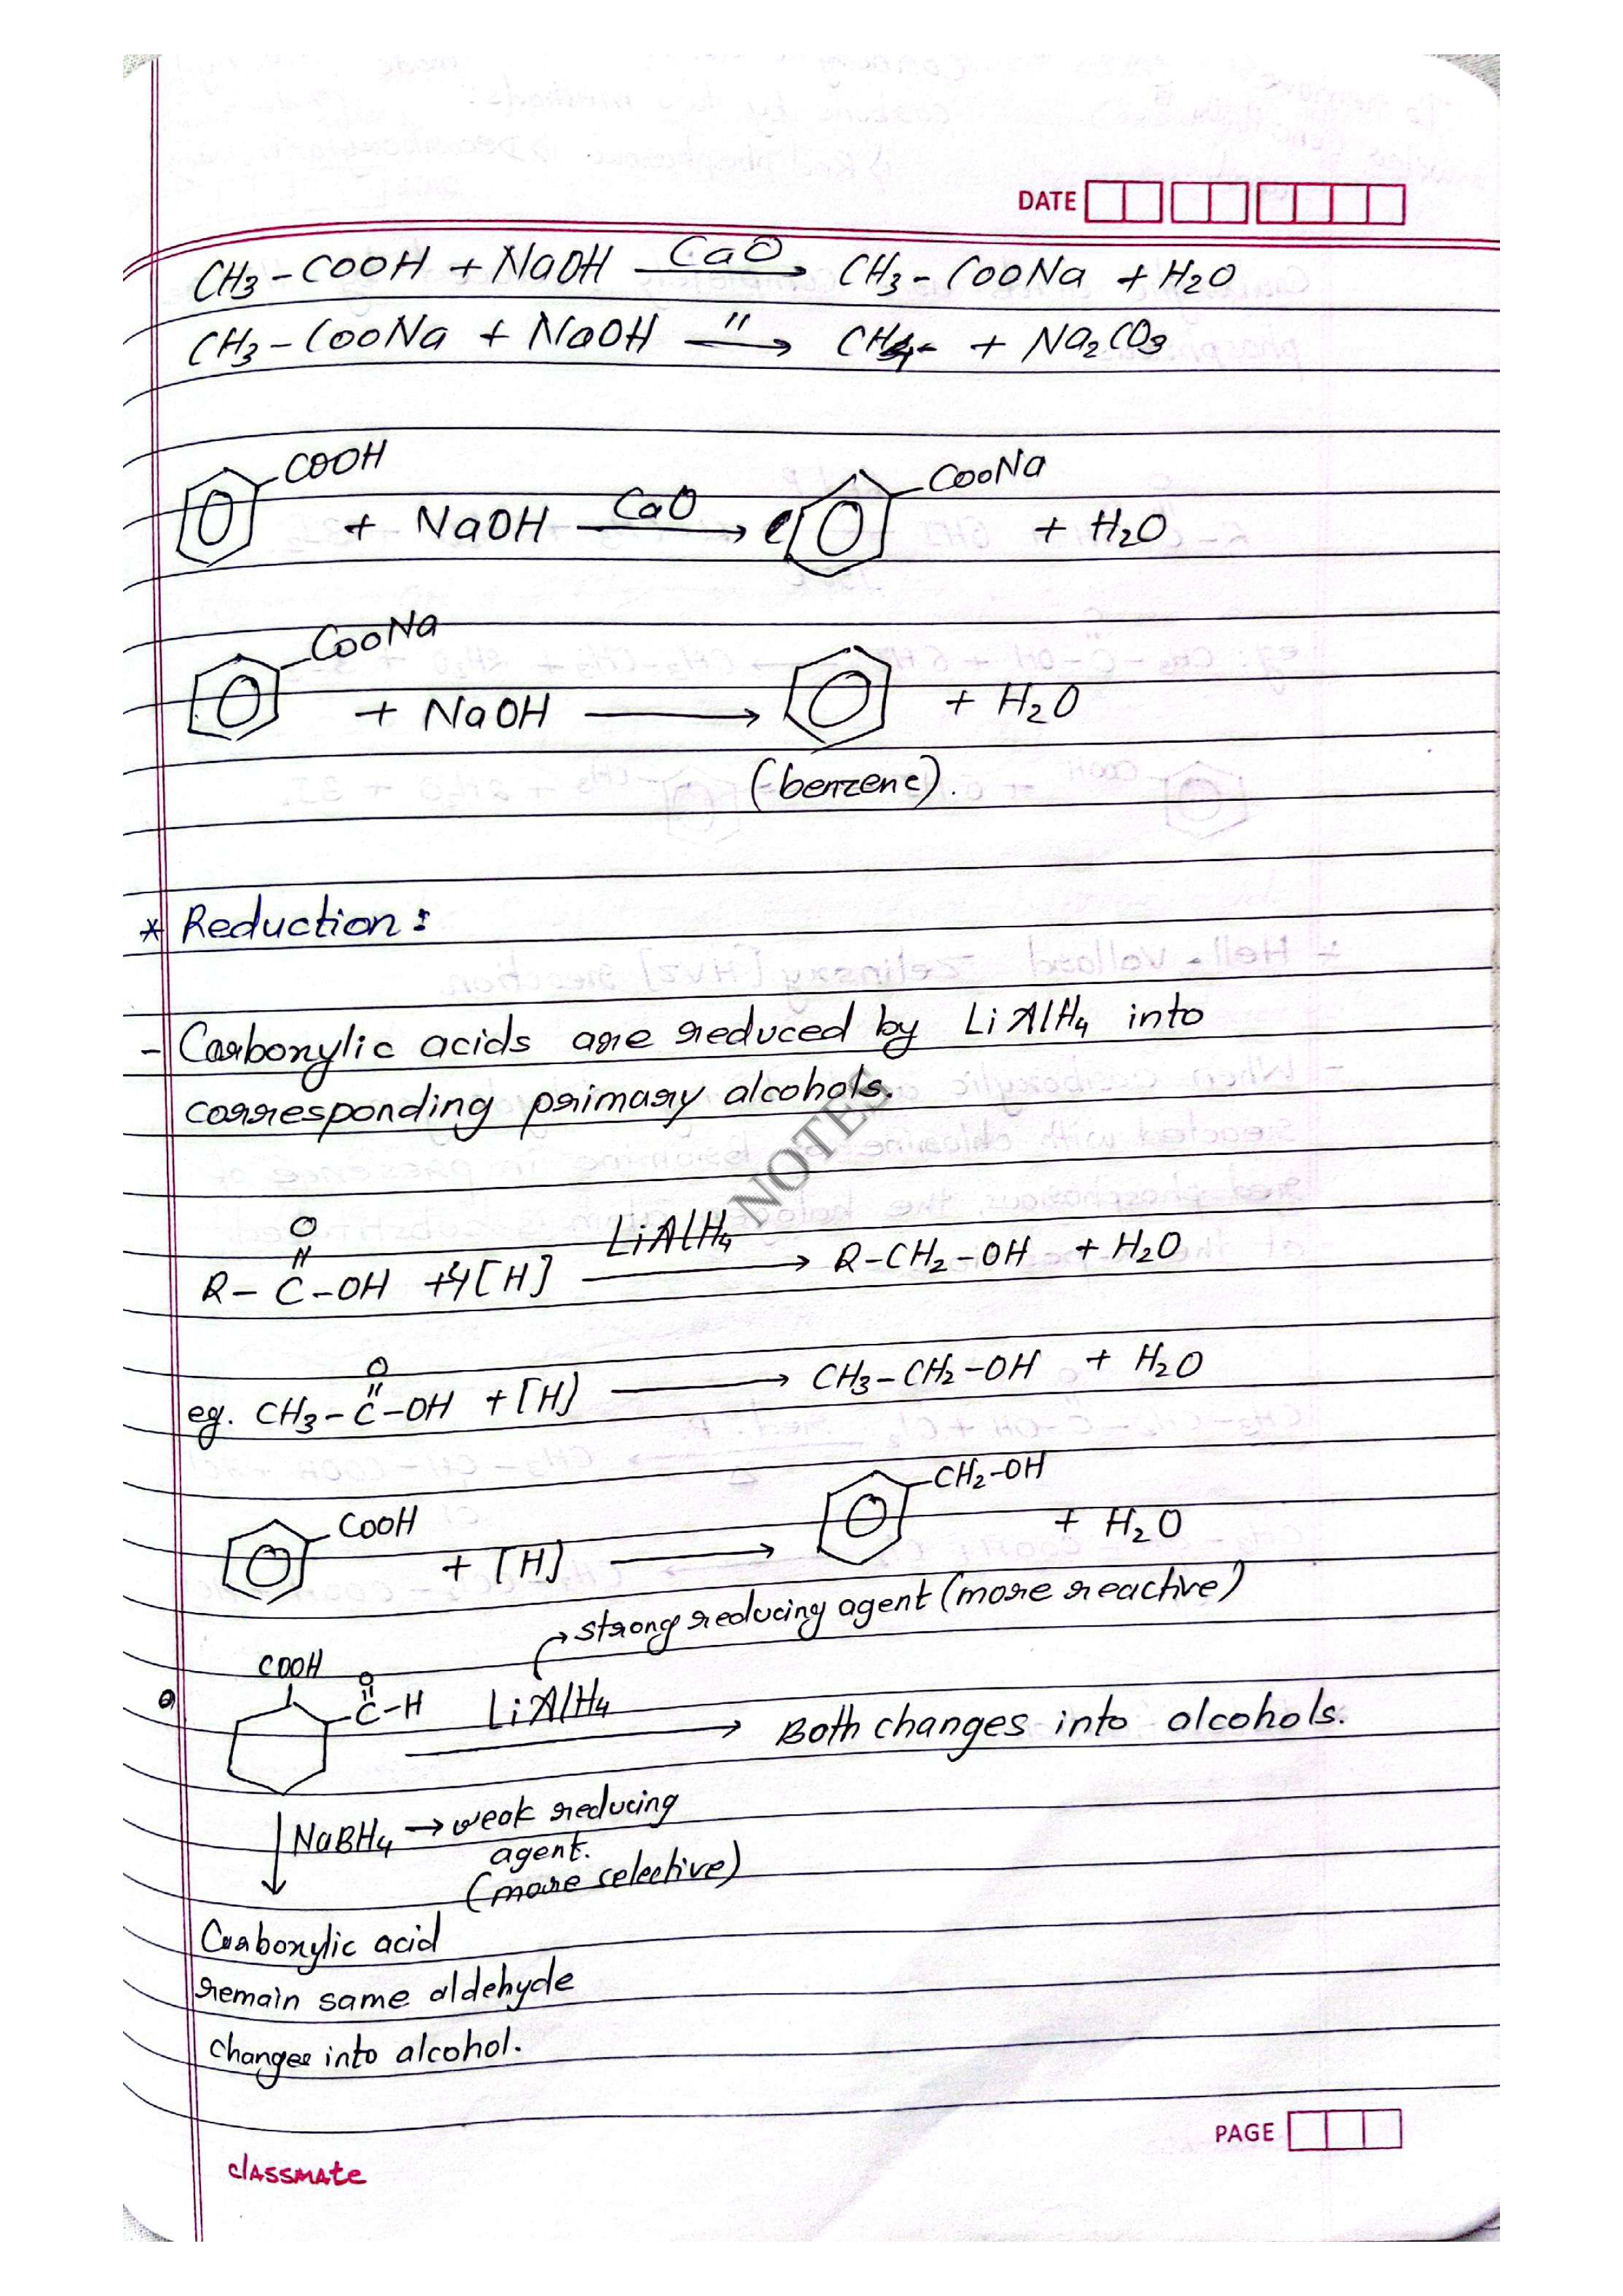 DATE
CH3-COOH + NaOH CaO→ CH3-COONa + H2O
CH3-COONa + NaOH "→ CH4 + Na2CO3
COOH + NaOH CaO→ COONa + H2O
COONa + NaOH → + H2O
(benzene).
* Reduction:
- Carboxylic acids are reduced by LiAlH4 into
corresponding primary alcohols.
NOTES
O
||
R-C-OH +4[H] LiAlH4→ R-CH2-OH + H2O
O
||
eg. CH3-C-OH +[H] → CH3-CH2-OH + H2O
COOH + [H] → CH2-OH + H2O
→strong reducing agent (more reactive)
COOH O
||
C-H LiAlH4→ Both changes into alcohols.
↓NaBH4 → weak reducing
agent.
(more selective)
Carboxylic acid
remain same aldehyde
changes into alcohol.
PAGE
classmate